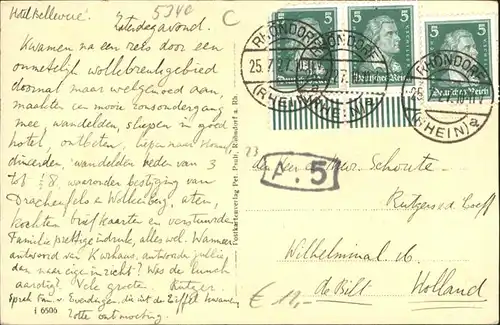 Hotel Bellevue
5340
C
Zaterdagavond.
Kwamen na een reis door een
onmetelijk wolkebreukgebied
doornat maar welgemoed aan,
maakten een mooie zonsondergang
mee, wandelden, sliepen in goed
hotel, ontbeten, liepen naar
wandelden neder van 3
tot 1/2 8, waaronder bestijging van
Drachenfels en Wolkenburg, aten,
kochten briefkaarten en verstuurden.
Familie prettige indruk, alles wel. Wanneer
antwoord van Kurhaus, antwoorden jullie
dan naar eigen inzicht? Was de lunch
aardig? Vele groeten. Rutger.
Sprak Fam. v. Everdingen, die uit de Eiffel kwamen
ontmoeting.
i 6506
Postkartenverlag Per Pauh, Rhöndorf a. Rh.
5
5
5
Deutsches Reich
Deutsches Reich
Deutsches Reich
RHÖNDORF
25.7.27.
(RHEIN)
RHÖNDORF
(RHEIN)
RHÖNDORF
(RHEIN)
23
A. 5
Mevr. Schoute
Rutgers
Wilhelminal. 16
de Bilt
Holland
€ 12,-